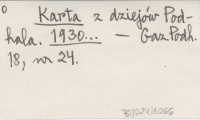 Karta z dziejów Pod-
hala. 1930... — Gaz Podh.
18, nr 24.